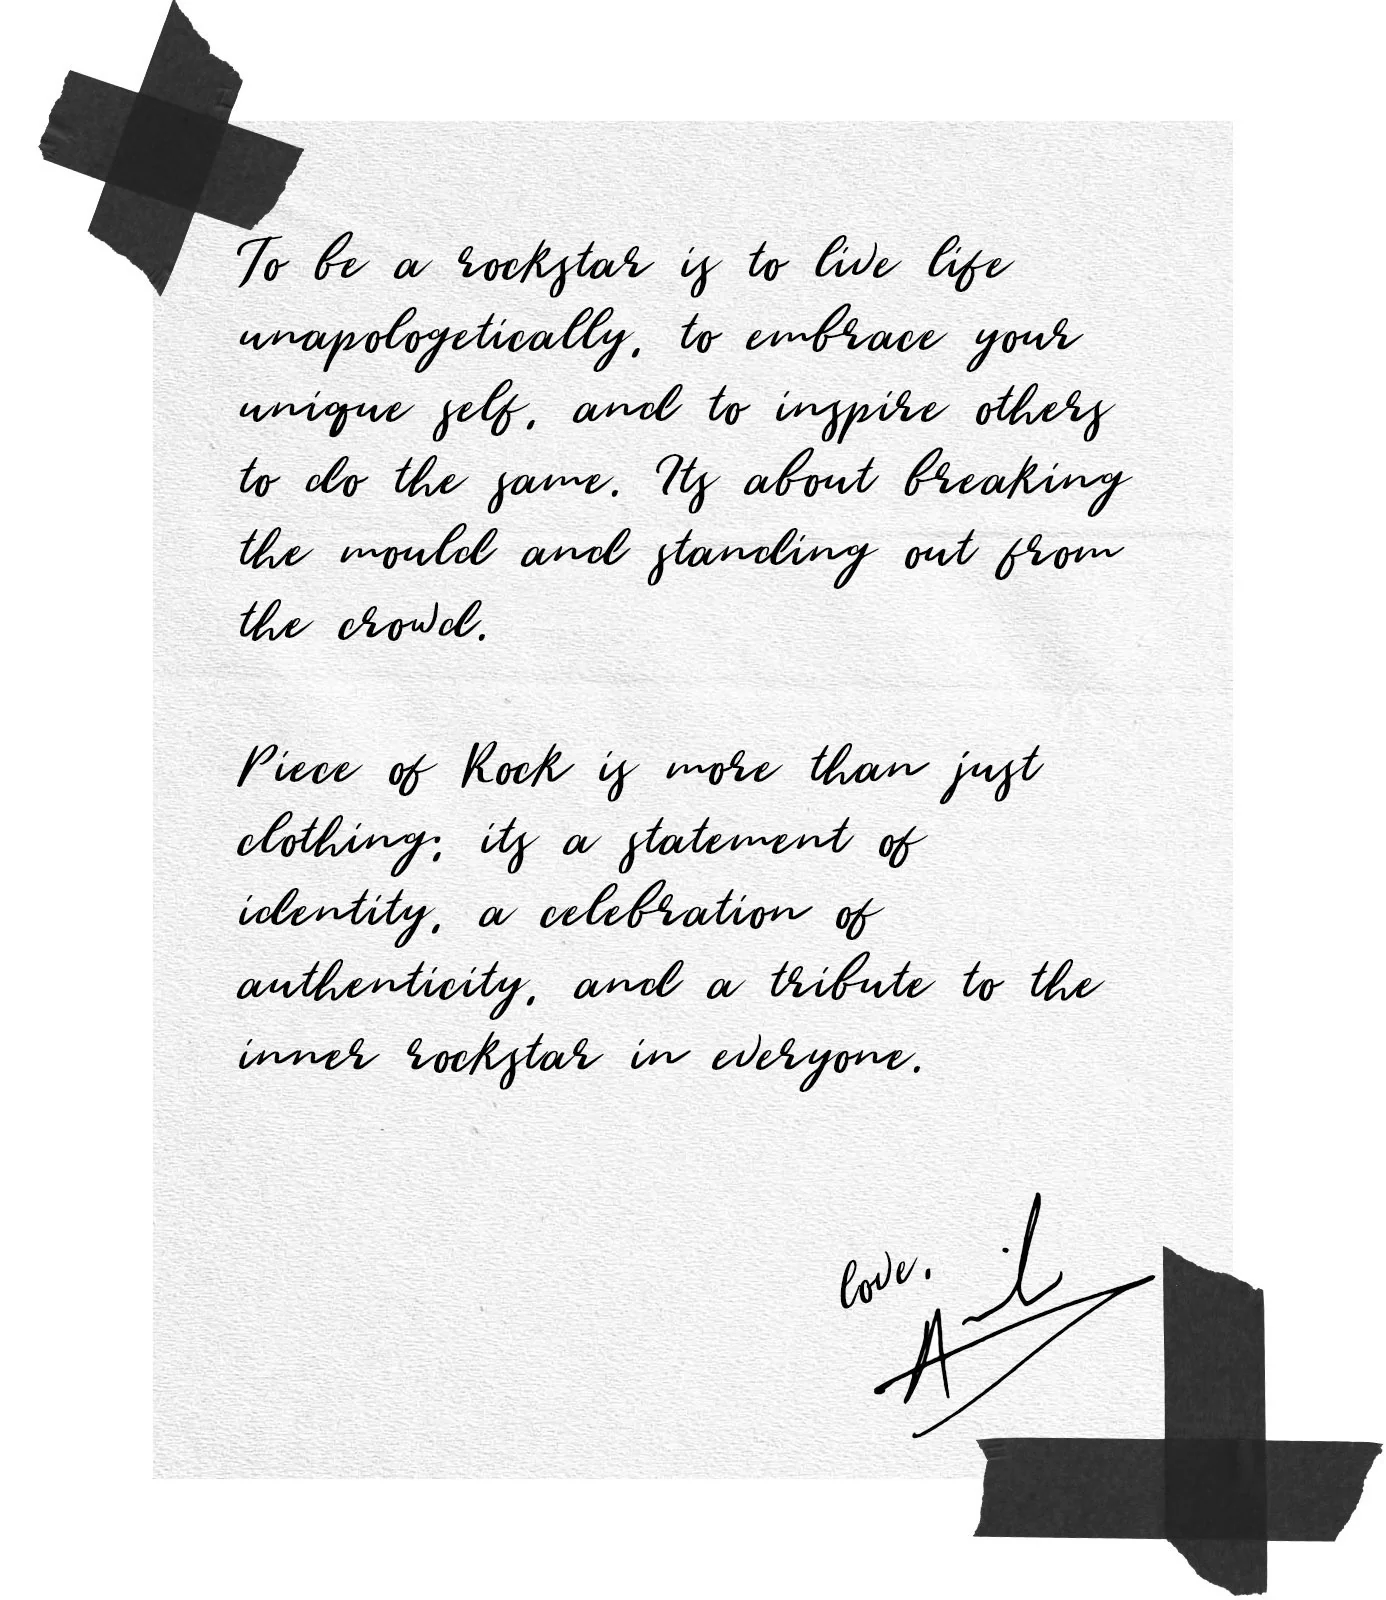 To be a rockstar is to live life
unapologetically, to embrace your
unique self, and to inspire others
to do the same. Its about breaking
the mould and standing out from
the crowd.
Piece of Rock is more than just
clothing; its a statement of
identity, a celebration of
authenticity, and a tribute to the
inner rockstar in everyone.
love,
Anil